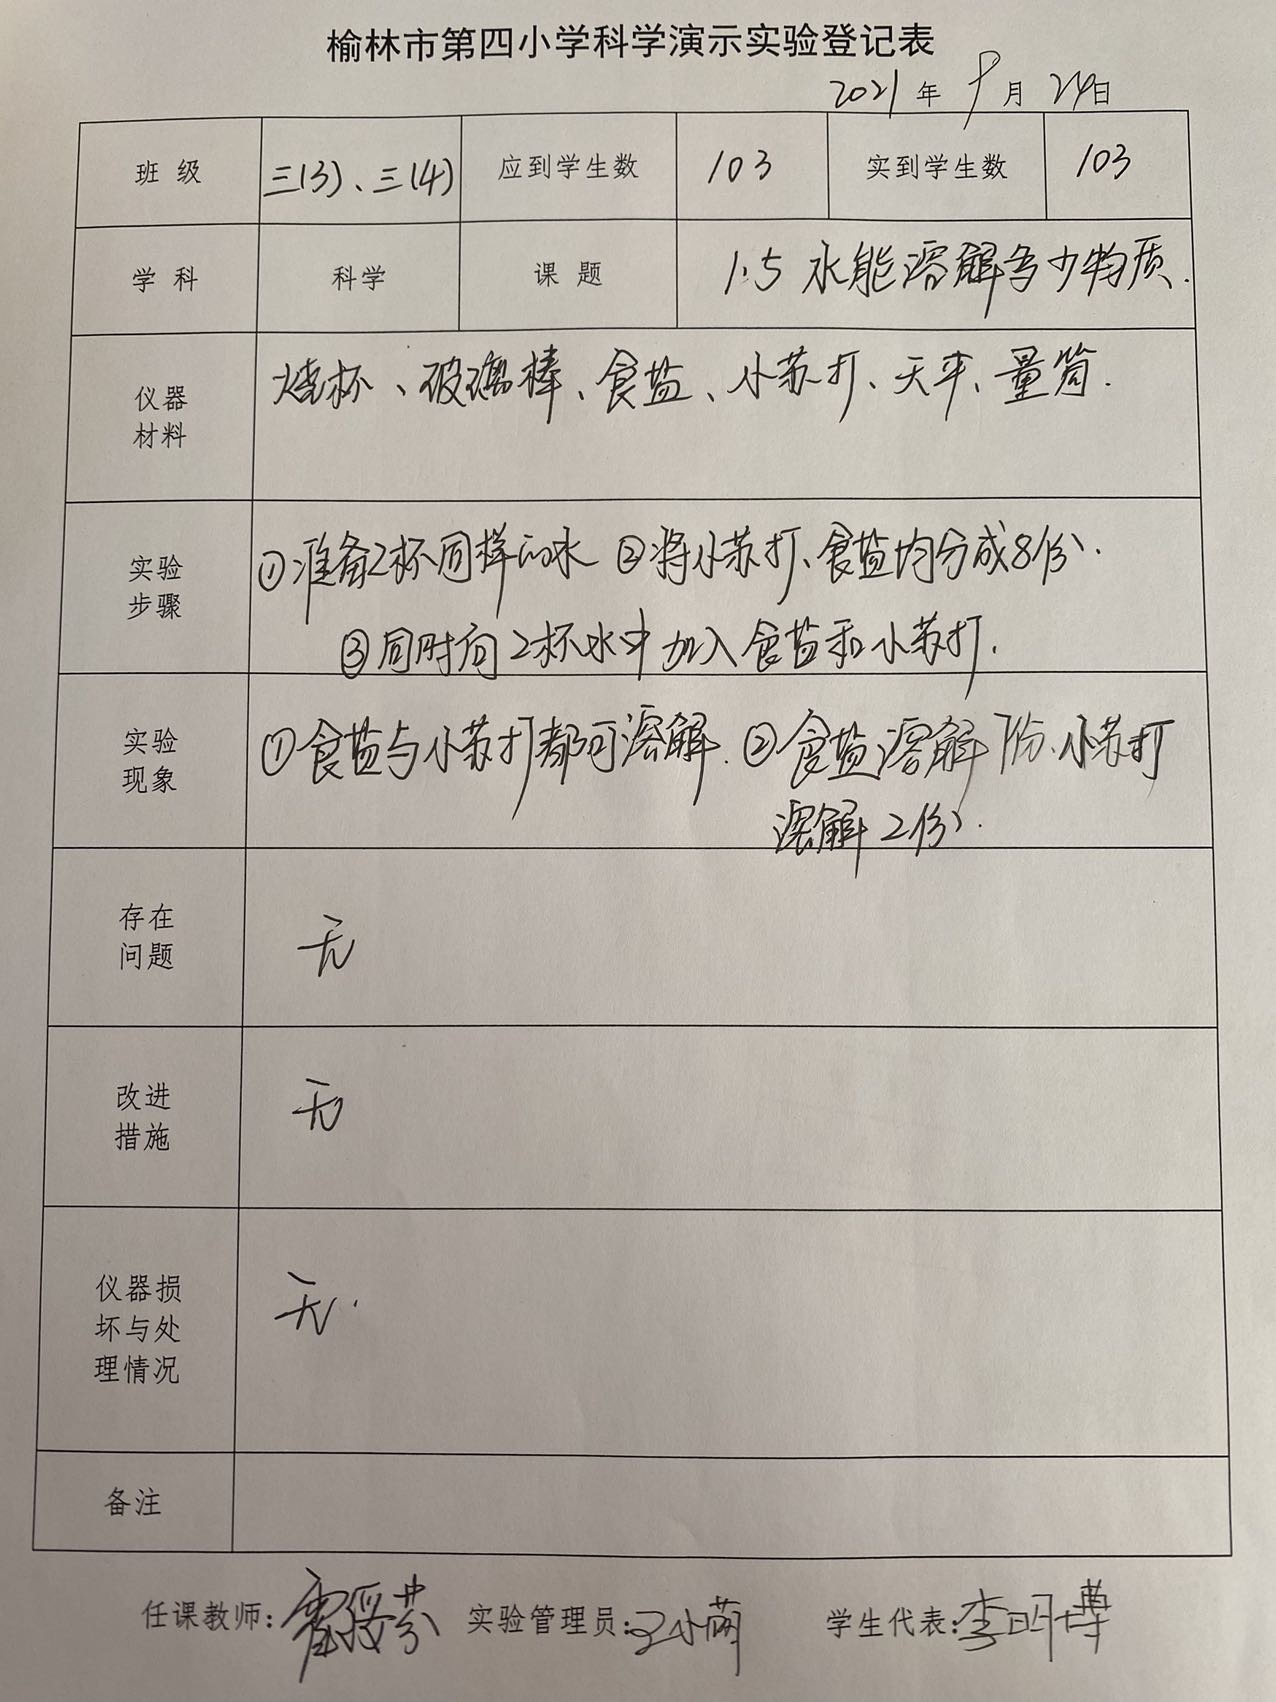 榆林市第四小学科学演示实验登记表
2021年 9月 24日
班 级 三(3)、三(4) 应到学生数 103 实到学生数 103
学 科 科学 课 题 1.5 水能溶解多少物质.
仪器
材料
烧杯、玻璃棒、食盐、小苏打、天平、量筒.
实验
步骤
①准备2杯同样的水 ②将小苏打、食盐均分成8份.
③同时向2杯水中加入食盐和小苏打.
实验
现象
①食盐与小苏打都可溶解. ②食盐溶解7份、小苏打
溶解2份.
存在
问题
无
改进
措施
无
仪器损
坏与处
理情况
无.
备注
任课教师: 实验管理员: 学生代表:李明博